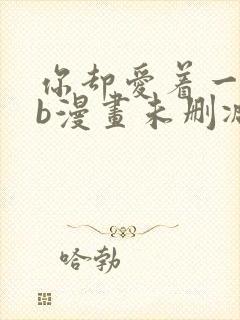 你却愛着一
b漫畫未删减
哈勃